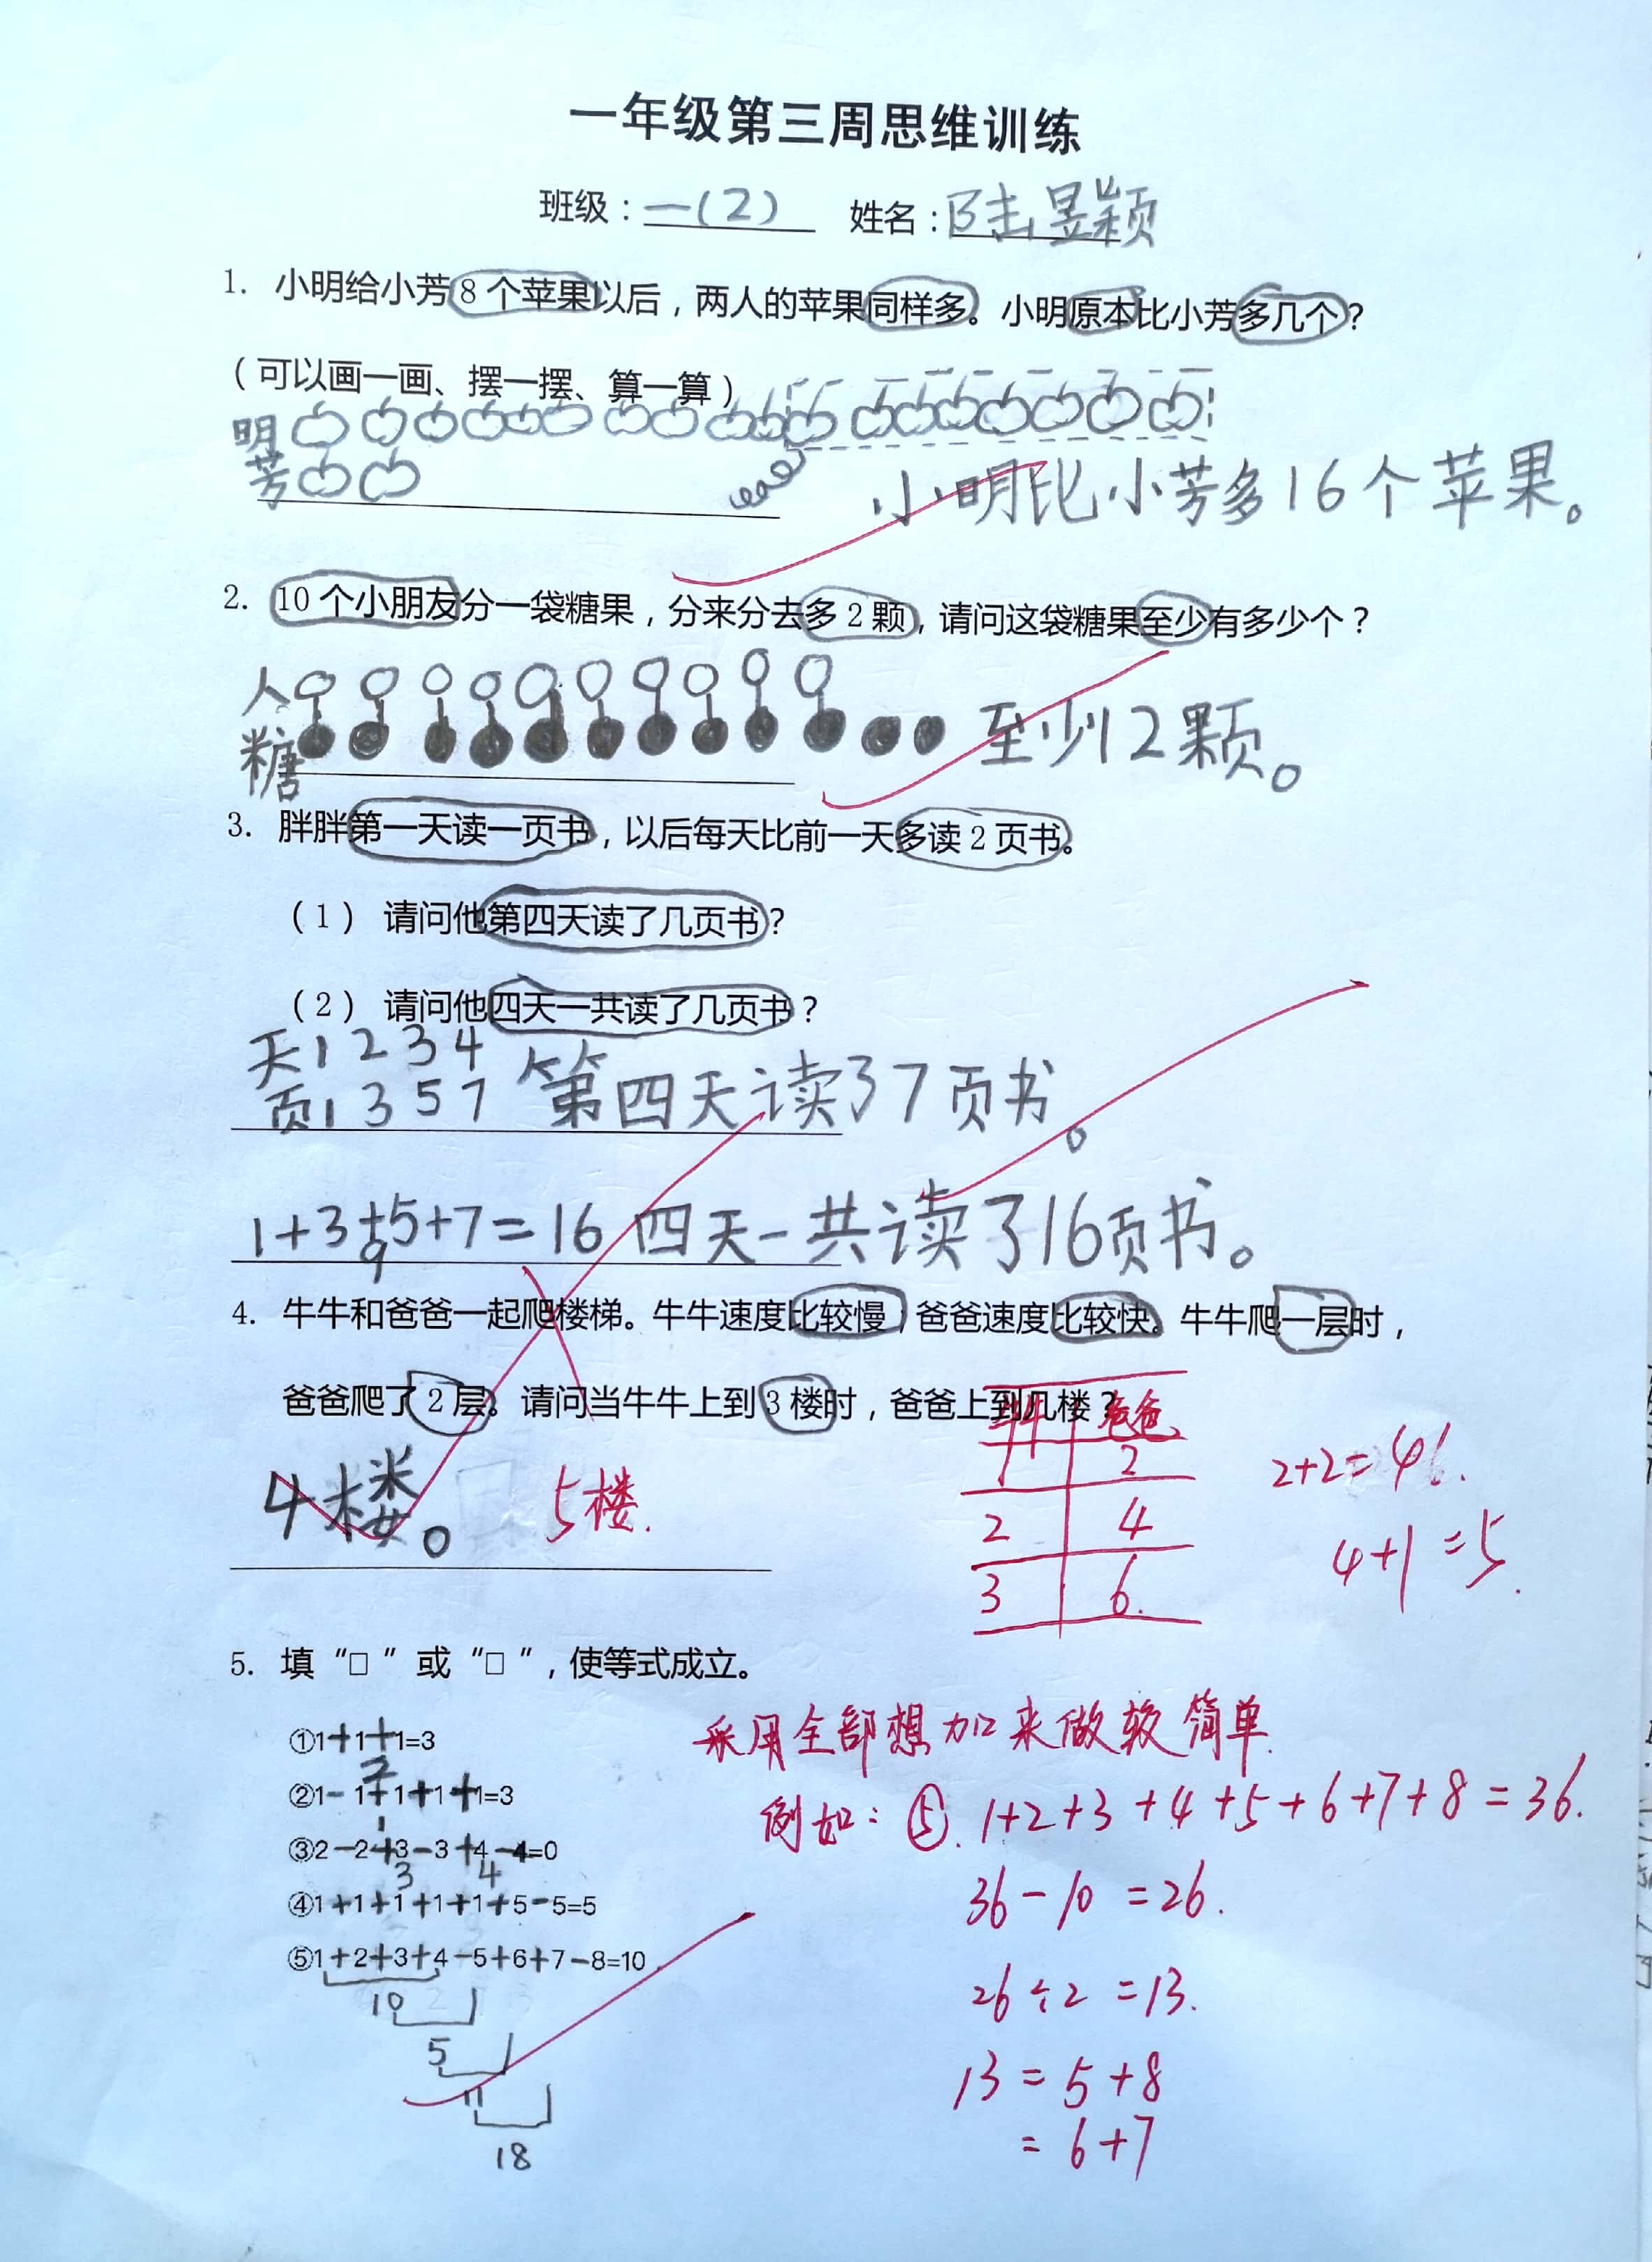 一年级第三周思维训练
班级：一(2) 姓名：陆昱颖
1. 小明给小芳8个苹果以后，两人的苹果同样多。小明原本比小芳多几个？
（可以画一画、摆一摆、算一算）
明
芳
小明比小芳多16个苹果。
2. 10个小朋友分一袋糖果，分来分去多2颗，请问这袋糖果至少有多少个？
人
糖
至少12颗。
3. 胖胖第一天读一页书，以后每天比前一天多读2页书。
（1） 请问他第四天读了几页书？
（2） 请问他四天一共读了几页书？
天1 2 3 4
页1 3 5 7 第四天读了7页书。
1+3+5+7=16 四天一共读了16页书。
9
4. 牛牛和爸爸一起爬楼梯。牛牛速度比较慢，爸爸速度比较快。牛牛爬一层时，
爸爸爬了2层。请问当牛牛上到3楼时，爸爸上到几楼？
4楼。 5楼.
牛牛 爸爸
1 2
2 4
3 6.
2+2=4.
4+1=5.
5. 填“□ ”或“□ ”，使等式成立。
①1+1+1=3
2
②1- 1+1+1+1=3
1
③2-2+3-3+4-4=0
3 4
④1+1+1+1+1+5-5=5
⑤1+2+3+4-5+6+7-8=10
10
5
11
18
采用全部想加来做较简单.
例如：⑤. 1+2+3+4+5+6+7+8=36.
36-10=26.
26÷2=13.
13=5+8
=6+7